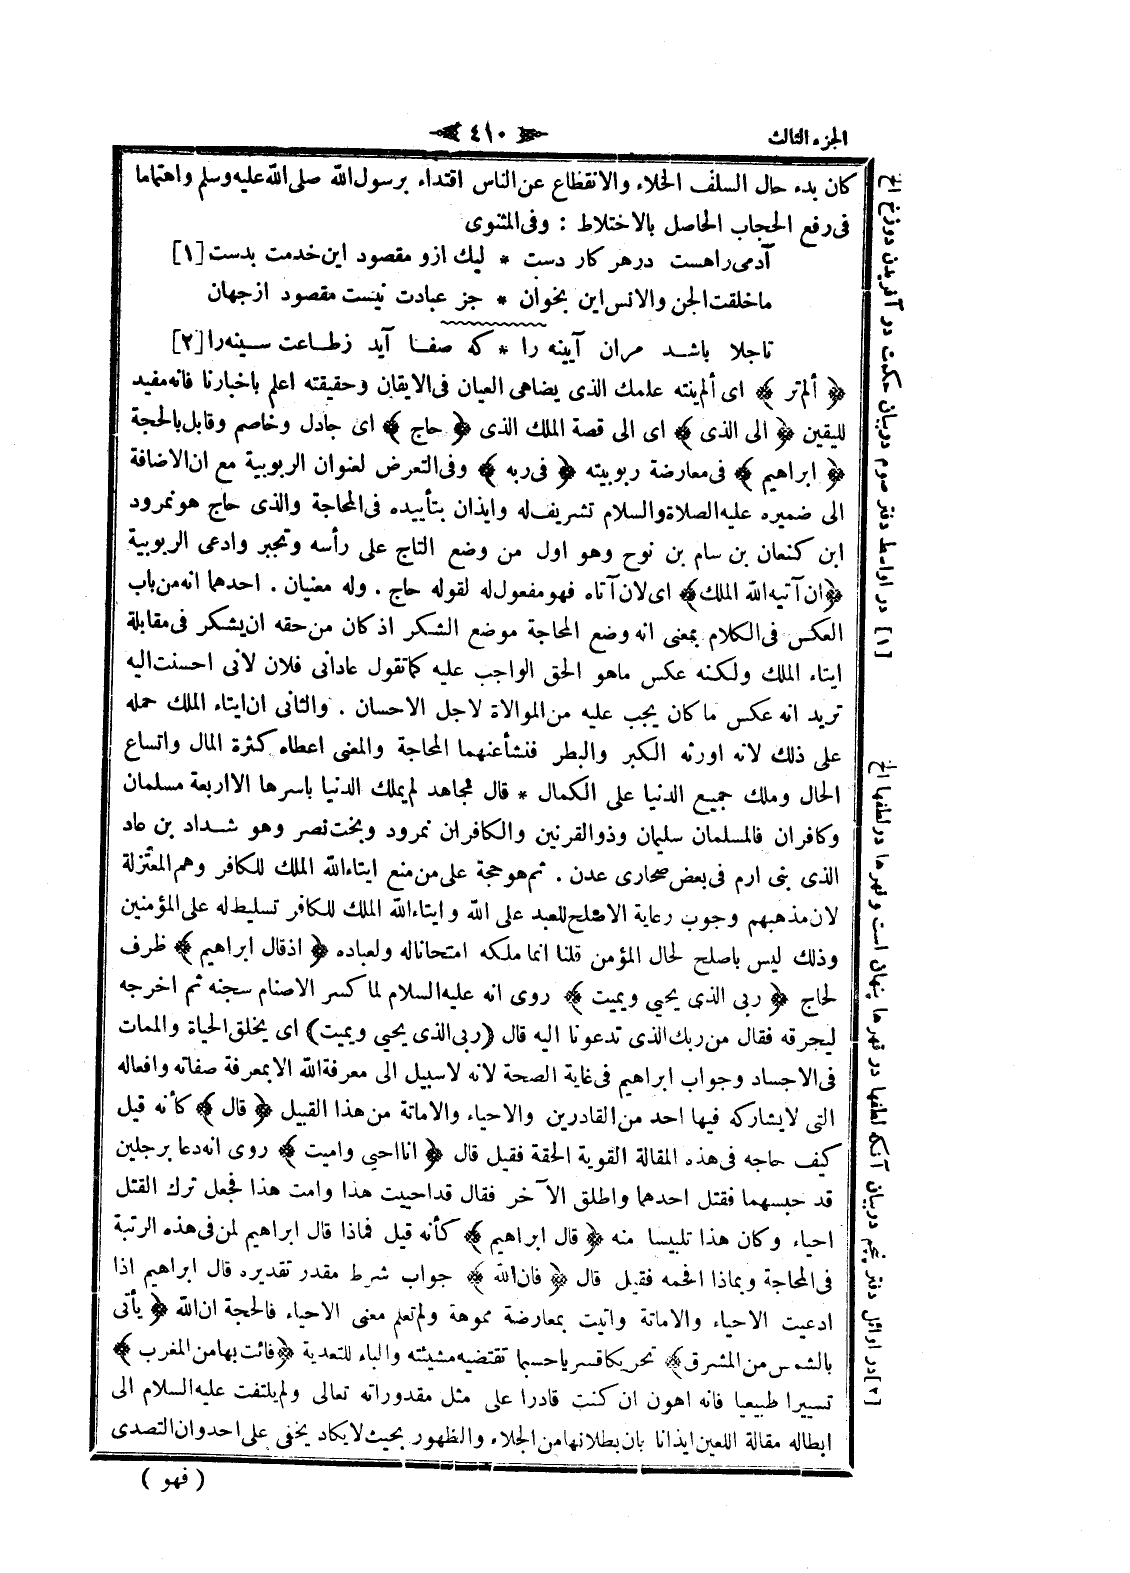 الجزء الثالث
٤١٠
كان بدء حال السلف الخلاء والانقطاع عن الناس اقتداء برسول الله صلى الله عليه وسلم واهتماما
فى رفع الحجاب الحاصل بالاختلاط : وفى المثنوى
آدمى راهست درهر كار دست * ليك ازو مقصود اين خدمت بدست [١]
ماخلقت الجن والانس اين بخوان * جز عبادت نيست مقصود ازجهان
تاجلا باشد مران آيينه را * كه صفا آيد زطاعت سينه را [٢]
﴿ ألم تر ﴾ اى ألم ينته علمك الذى يضاهى العيان فى الايقان وحقيقته اعلم باخبارنا فانه مفيد
لليقين ﴿ الى الذى ﴾ اى الى قصة الملك الذى ﴿ حاج ﴾ اى جادل وخاصم وقابل بالحجة
﴿ ابراهيم ﴾ فى معارضة ربوبيته ﴿ فى ربه ﴾ وفى التعرض لعنوان الربوبية مع ان الاضافة
الى ضميره عليه الصلاة والسلام تشريف له وايذان بتأييده فى المحاجة والذى حاج هو نمرود
ابن كنعان بن سام بن نوح وهو اول من وضع التاج على رأسه وتجبر وادعى الربوبية
﴿ ان آتيه الله الملك ﴾ اى لان آتاه فهو مفعول له لقوله حاج . وله معنيان . احدهما انه من باب
العكس فى الكلام بمعنى انه وضع المحاجة موضع الشكر اذ كان من حقه ان يشكر فى مقابلة
ايتاء الملك ولكنه عكس ماهو الحق الواجب عليه كما تقول عادانى فلان لانى احسنت اليه
تريد انه عكس ما كان يجب عليه من الموالاة لاجل الاحسان . والثانى ان ايتاء الملك حمله
على ذلك لانه اورثه الكبر والبطر فنشأ عنهما المحاجة والمعنى اعطاه كثرة المال واتساع
الحال وملك جميع الدنيا على الكمال * قال مجاهد لم يملك الدنيا باسرها الا اربعة مسلمان
وكافران فالمسلمان سليمان وذو القرنين والكافران نمرود وبخت نصر وهو شداد بن عاد
الذى بنى ارم فى بعض صحارى عدن . ثم هو حجة على من منع ايتاء الله الملك للكافر وهم المعتزلة
لان مذهبهم وجوب رعاية الاصلح للعبد على الله وايتاء الله الملك للكافر تسليط له على المؤمنين
وذلك ليس باصلح لحال المؤمن قلنا انما ملكه امتحانا له ولعباده ﴿ اذ قال ابراهيم ﴾ ظرف
لحاج ﴿ ربى الذى يحيى ويميت ﴾ روى انه عليه السلام لما كسر الاصنام سجنه ثم اخرجه
ليحرقه فقال من ربك الذى تدعونا اليه قال ( ربى الذى يحيى ويميت ) اى يخلق الحياة والممات
فى الاجساد وجواب ابراهيم فى غاية الصحة لانه لا سبيل الى معرفة الله الا بمعرفة صفاته وافعاله
التى لا يشاركه فيها احد من القادرين والاحياء والاماتة من هذا القبيل ﴿ قال ﴾ كأنه قيل
كيف حاجه فى هذه المقالة القوية الحقة فقيل قال ﴿ انا احيى واميت ﴾ روى انه دعا برجلين
قد حبسهما فقتل احدهما واطلق الآخر فقال قد احييت هذا وامت هذا فجعل ترك القتل
احياء وكان هذا تلبيسا منه ﴿ قال ابراهيم ﴾ كأنه قيل فماذا قال ابراهيم لمن فى هذه الرتبة
فى المحاجة وبماذا افحمه فقيل قال ﴿ فان الله ﴾ جواب شرط مقدر تقديره قال ابراهيم اذا
ادعيت الاحياء والاماتة واتيت بمعارضة مموهة ولم تعلم معنى الاحياء فالحجة ان الله ﴿ يأتى
بالشمس من المشرق ﴾ تحريكا قسريا حسبما تقتضيه مشيئته والباء للتعدية ﴿ فائت بها من المغرب ﴾
تسييرا طبيعيا فانه اهون ان كنت قادرا على مثل مقدوراته تعالى ولم يلتفت عليه السلام الى
ابطاله مقالة اللعين ايذانا بان بطلانها من الجلاء والظهور بحيث لا يكاد يخفى على احد وان التصدى
( فهو )
[١] در اواسط دفتر سوم در بيان حكمت در آفريدن دوزخ الخ
[٢] در اوائل دفتر پنجم در بيان آنكه لطفها در قهرها پنهان است وقهرها در لطفها الخ